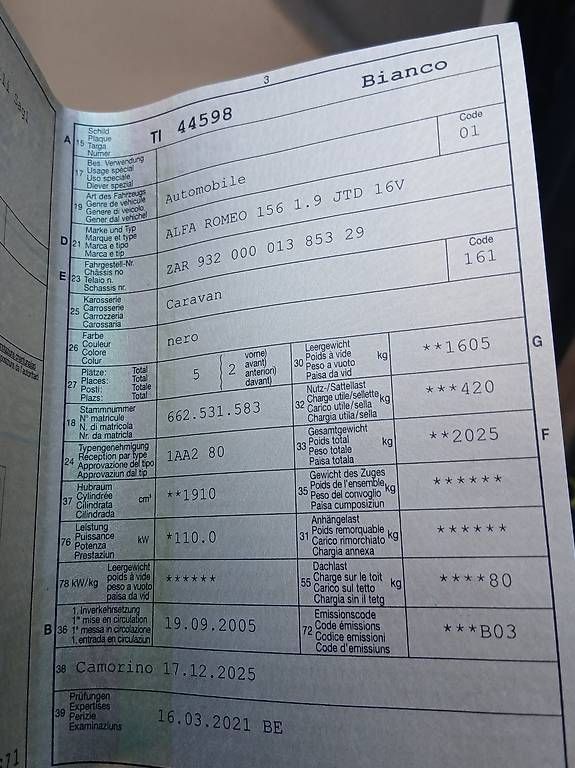 3
Bianco
A 15 Schild Plaque Targa Numer
TI 44598
17 Bes. Verwendung Usage spécial Uso speciale Diever spezial
Code
01
19 Art des Fahrzeugs Genre de véhicule Genere di veicolo Gener dal vehichel
Automobile
D 21 Marke und Typ Marque et type Marca e tipo Marca e tip
ALFA ROMEO 156 1.9 JTD 16V
E 23 Fahrgestell-Nr. Châssis no Telaio n. Schassis nr.
ZAR 932 000 013 853 29
25 Karosserie Carrosserie Carrozzeria Carossaria
Caravan
Code
161
26 Farbe Couleur Colore Colur
nero
27 Plätze: Total Places: Total Posti: Totale Plazs: Total
5
2 vorne) avant) anteriori) davant)
30 Leergewicht Poids à vide Peso a vuoto Paisa da vid kg
**1605
G
18 Stammnummer N° matricule N. di matricola Nr. da matricla
662.531.583
32 Nutz-/Sattellast Charge utile/sellette Carico utile/sella Chargia utila/sella kg
***420
24 Typengenehmigung Réception par type Approvazione del tipo Approvaziun dal tip
1AA2 80
33 Gesamtgewicht Poids total Peso totale Paisa totala kg
**2025
F
37 Hubraum Cylindrée Cilindrata Cilindrada cm³
**1910
35 Gewicht des Zuges Poids de l'ensemble Peso del convoglio Paisa cumposiziun kg
******
76 Leistung Puissance Potenza Prestaziun kW
*110.0
31 Anhängelast Poids remorquable Carico rimorchiato Chargia annexa kg
******
78 kW/kg Leergewicht poids à vide peso a vuoto paisa da vid
******
55 Dachlast Charge sur le toit Carico sul tetto Chargia sin il tetg kg
****80
B 36 1. Inverkehrsetzung 1re mise en circulation 1a messa in circolazione 1. entrada en circulaziun
19.09.2005
72 Emissionscode Code émissions Codice emissioni Code d'emissiuns
***B03
38 Camorino 17.12.2025
39 Prüfungen Expertises Perizie Examinaziuns
16.03.2021 BE